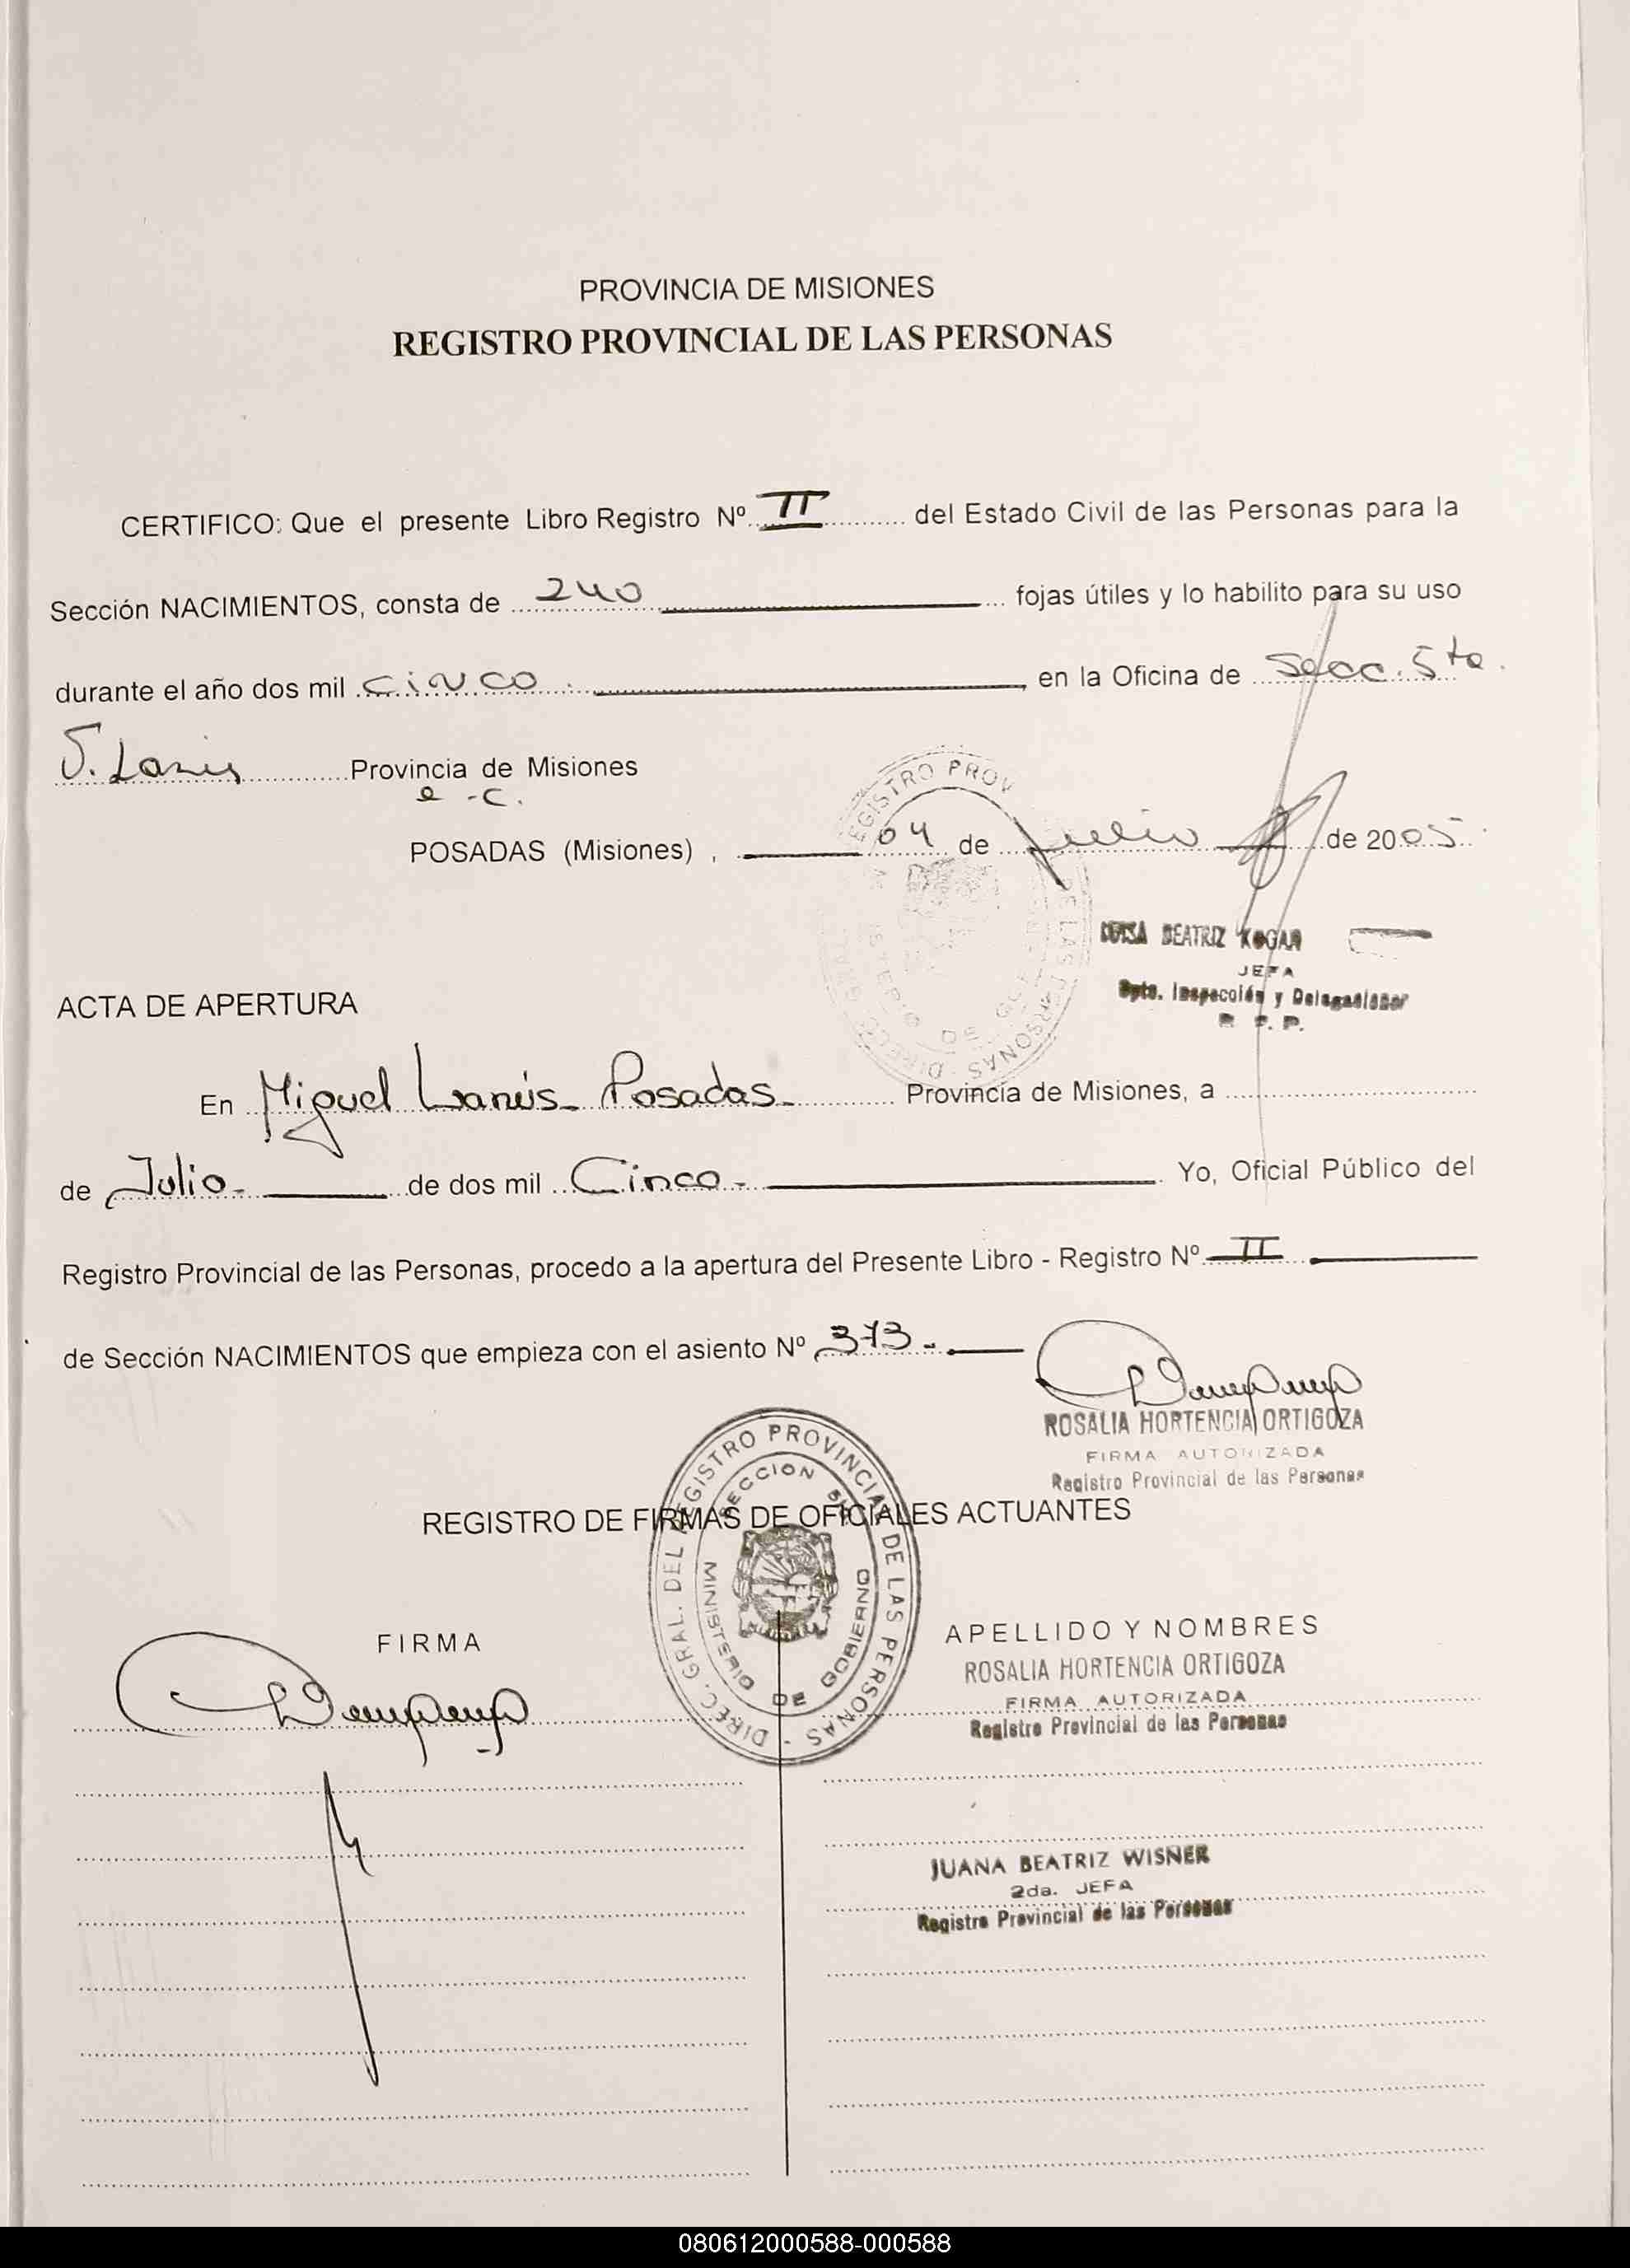 PROVINCIA DE MISIONES
REGISTRO PROVINCIAL DE LAS PERSONAS
CERTIFICO: Que el presente Libro Registro Nº II del Estado Civil de las Personas para la
Sección NACIMIENTOS, consta de 240 fojas útiles y lo habilito para su uso
durante el año dos mil cinco en la Oficina de Secc. 5ta.
Provincia de Misiones
POSADAS (Misiones), 04 de Julio de 2005
LUISA BEATRIZ KOGAR
JEFA
Dpto. Inspección y Delegaciones
R. P. P.
ACTA DE APERTURA
En Miguel Lanús - Posadas - Provincia de Misiones, a
de Julio - de dos mil Cinco - Yo, Oficial Público del
Registro Provincial de las Personas, procedo a la apertura del Presente Libro - Registro Nº II
de Sección NACIMIENTOS que empieza con el asiento Nº 373 -
ROSALIA HORTENCIA ORTIGOZA
FIRMA AUTORIZADA
Registro Provincial de las Personas
DIREC. GRAL. DEL REGISTRO PROVINCIAL DE LAS PERSONAS -
SECCION 5ta
MINISTERIO DE GOBIERNO
REGISTRO DE FIRMAS DE OFICIALES ACTUANTES
FIRMA
APELLIDO Y NOMBRES
ROSALIA HORTENCIA ORTIGOZA
FIRMA AUTORIZADA
Registro Provincial de las Personas
JUANA BEATRIZ WISNER
2da. JEFA
Registro Provincial de las Personas
080612000588-000588